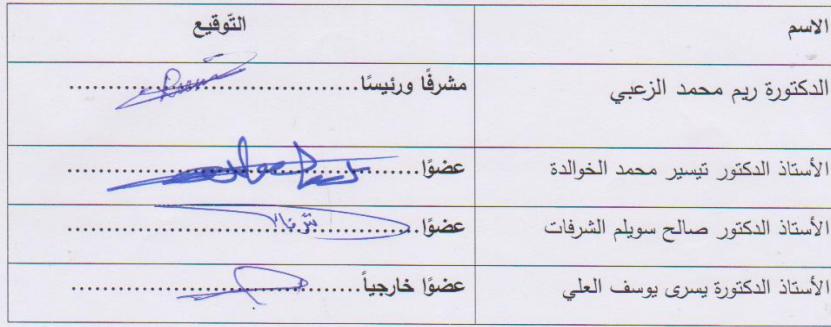 الاسم التّوقيع
الدكتورة ريم محمد الزعبي مشرفًا ورئيسًا....................................
الأستاذ الدكتور تيسير محمد الخوالدة عضوًا............................................
الأستاذ الدكتور صالح سويلم الشرفات عضوًا............................................
الأستاذ الدكتورة يسرى يوسف العلي عضوًا خارجياً....................................